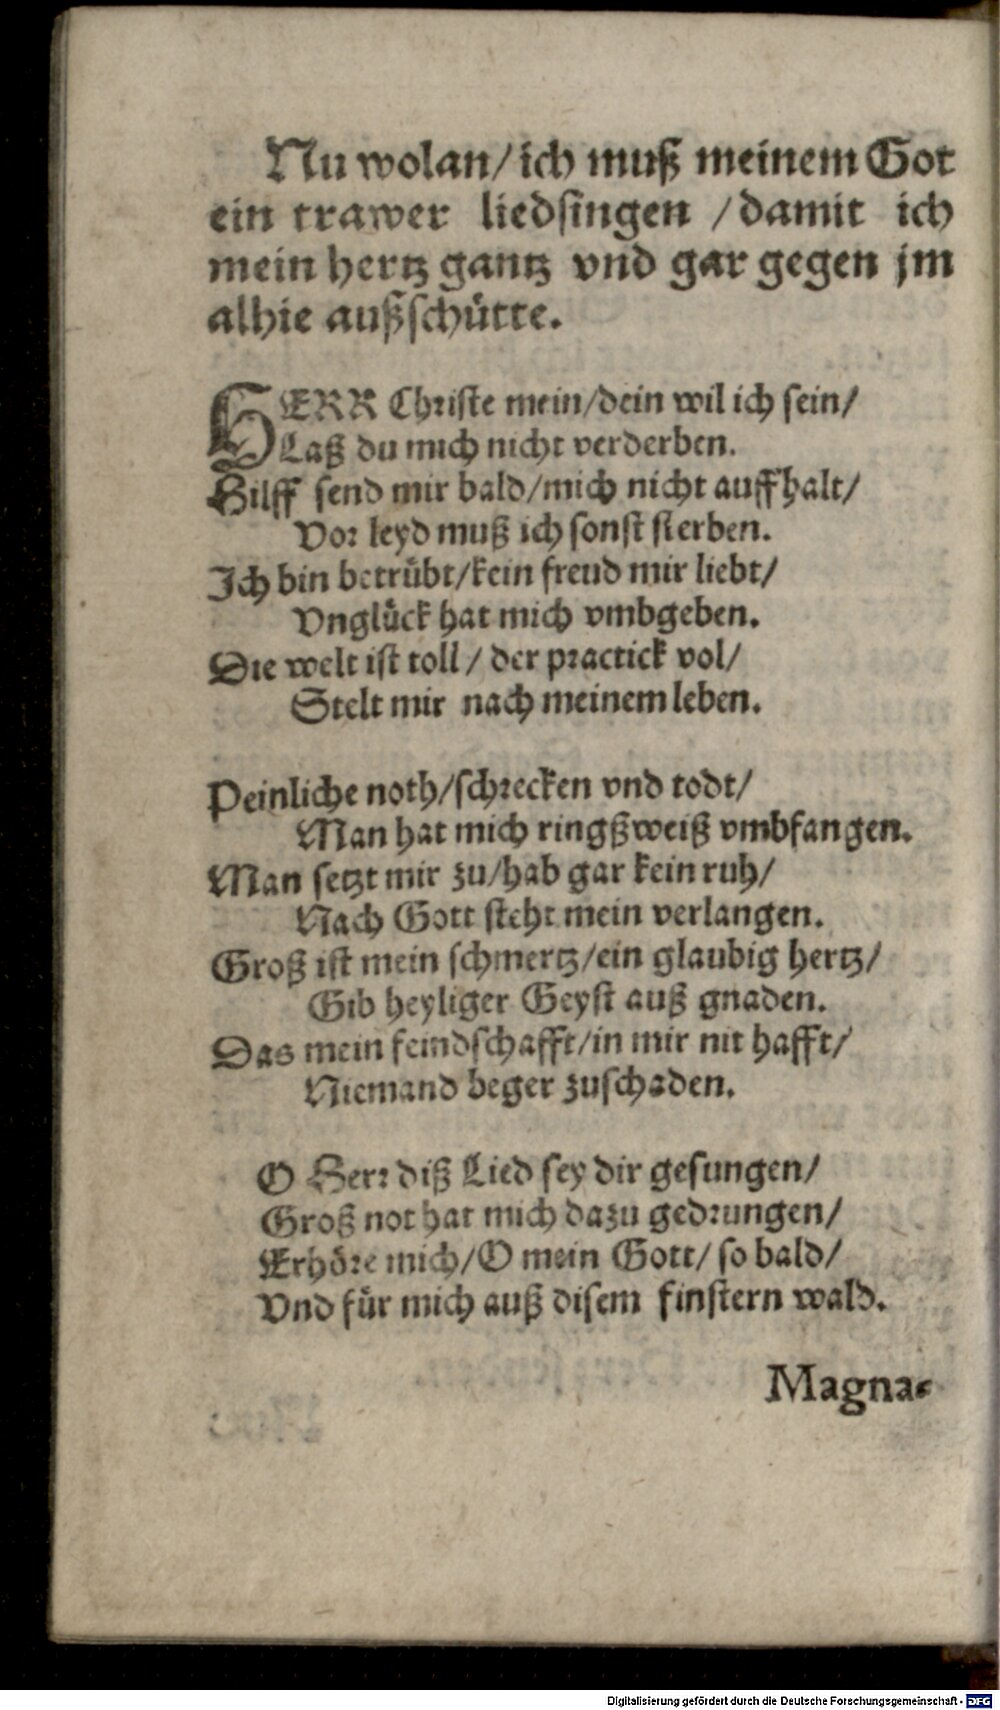 Nu wolan/ ich muß meinem Got
ein trawer liedsingen /damit ich
mein hertz gantz vnd gar gegen jm
alhie außschütte.
HERR Christe mein/dein wil ich sein/
Laß du mich nicht verderben.
Hilff send mir bald/mich nicht auffhalt/
Vor leyd muß ich sonst sterben.
Ich bin betrübt/kein freud mir liebt/
Vnglück hat mich vmbgeben.
Die welt ist toll/ der practick vol/
Stelt mir nach meinem leben.
Peinliche noth/schrecken vnd todt/
Man hat mich ringßweiß vmbfangen.
Man setzt mir zu/hab gar kein ruh/
Nach Gott steht mein verlangen.
Groß ist mein schmertz/ein glaubig hertz/
Gib heyliger Geyst auß gnaden.
Das mein feindschafft/in mir nit hafft/
Niemand beger zuschaden.
O Herr diß Lied sey dir gesungen/
Groß not hat mich dazu gedrungen/
Erhöre mich/O mein Gott/ so bald/
Vnd für mich auß disem finstern wald.
Magna-
Digitalisierung gefördert durch die Deutsche Forschungsgemeinschaft - DFG